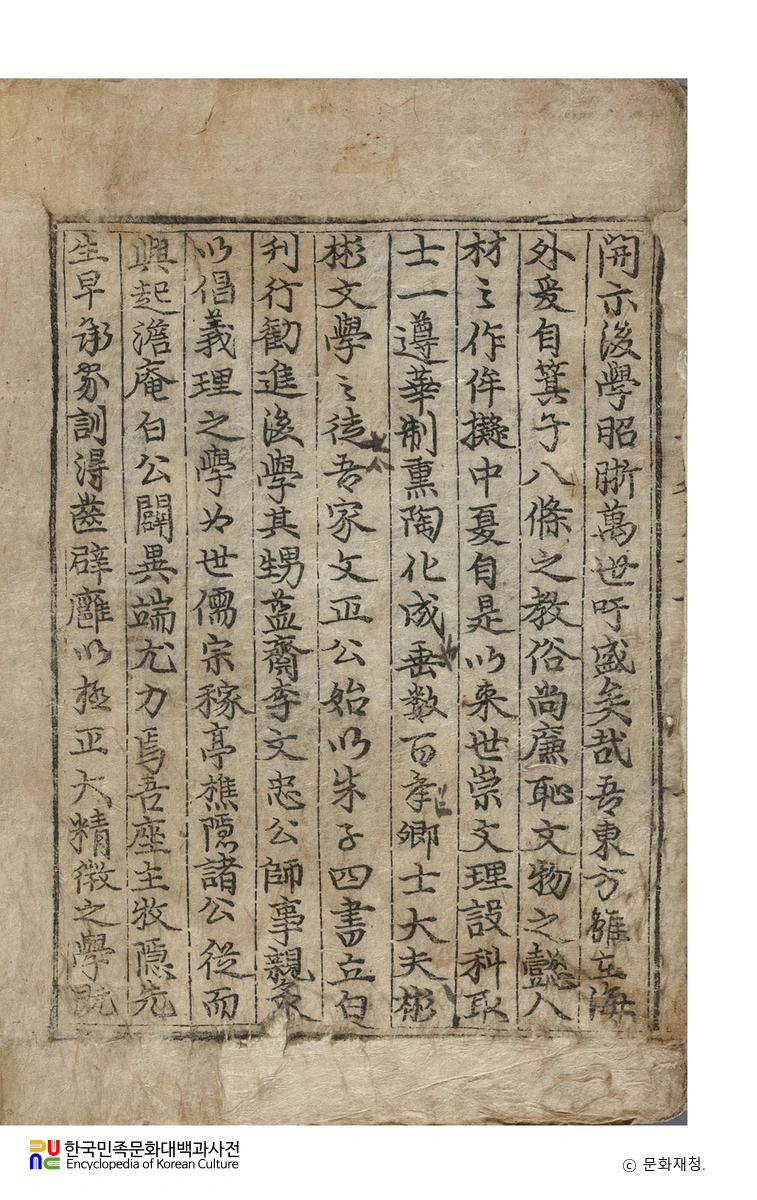 開示後學昭晣萬世吁盛矣哉吾東方雖在海
外爰自箕子八條之教俗尚廉恥文物之懿人
材之作侔擬中夏自是以来世崇文理設科取
士一遵華制熏陶化成垂數百年卿士大夫彬
彬文學之徒吾家文正公始以朱子四書立白
刋行勸進後學其甥益齋李文忠公師事親炙
以倡義理之學为世儒宗稼亭樵隱諸公從而
興起澹庵白公闢異端尤力焉吾座主牧隱先
生早承家訓得齒辟廱以極正大精微之學既
한국민족문화대백과사전
Encyclopedia of Korean Culture
© 문화재청.